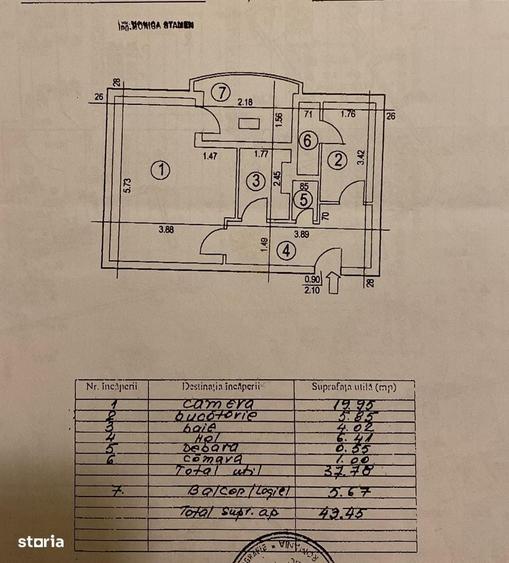 ing. MONICA STAMEN
28
26
7
2.18
1.56
71
1.76
26
6
1.47
1.77
2
3.42
1
5.73
3
2.45
85
5
70
3.88
3.89
4
1.49
0.90
2.10
28
Nr. încăperii Destinația încăperii Suprafața utilă (mp)
1 camera 19.95
2 bucatarie 5.85
3 baie 4.02
4 Hol 6.41
5 Debara 0.55
6 camara 1.00
Total util 37.78
7. Balcon/Logie 5.67
Total supr. ap 43.45
storia
ROMANIA